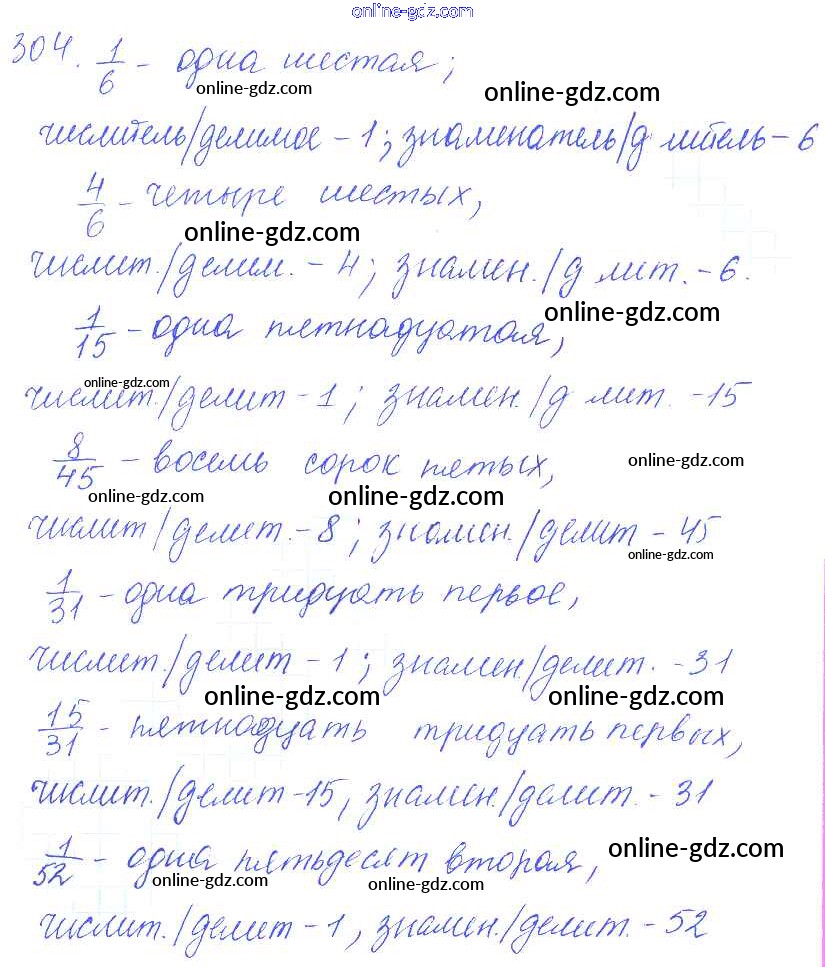 online-gdz.com
304. 1/6 - одна шестая;
online-gdz.com online-gdz.com
числитель/делимое - 1; знаменатель/д литель - 6
4/6 - четыре шестых,
online-gdz.com
числит./делим. - 4; знамен./д лит. - 6.
1/15 - одна пятнадцатая,
online-gdz.com
online-gdz.com
числит./делит - 1; знамен./д лит. - 15
8/45 - восемь сорок пятых,
online-gdz.com
online-gdz.com online-gdz.com
числит/делит. - 8; знамен./делит - 45
online-gdz.com
1/31 - одна тридцать первое,
числит./делит - 1; знамен./делит. - 31
online-gdz.com online-gdz.com
15/31 - пятнадцать тридцать первых,
числит./делит - 15, знамен./делит. - 31
1/52 - одна пятьдесят вторая,
online-gdz.com
online-gdz.com online-gdz.com
числит./делит - 1, знамен./делит. - 52